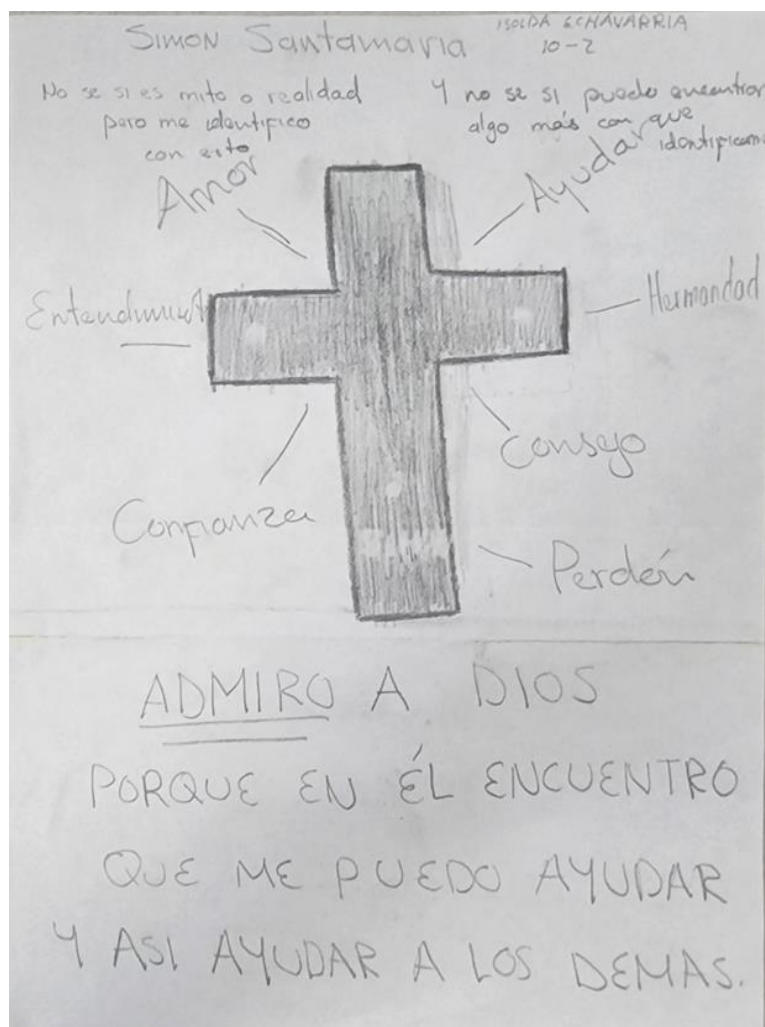 SIMON Santamaria
ISOLDA ECHAVARRIA
10-2
No se si es mito o realidad
pero me identifico
con esto
Y no se si puedo encontrar
algo más con que
Amor
Ayudar
Entendimient
Hermandad
Confianza
Consejo
Perdón
ADMIRO A DIOS
PORQUE EN ÉL ENCUENTRO
QUE ME PUEDO AYUDAR
Y ASI AYUDAR A LOS DEMAS.